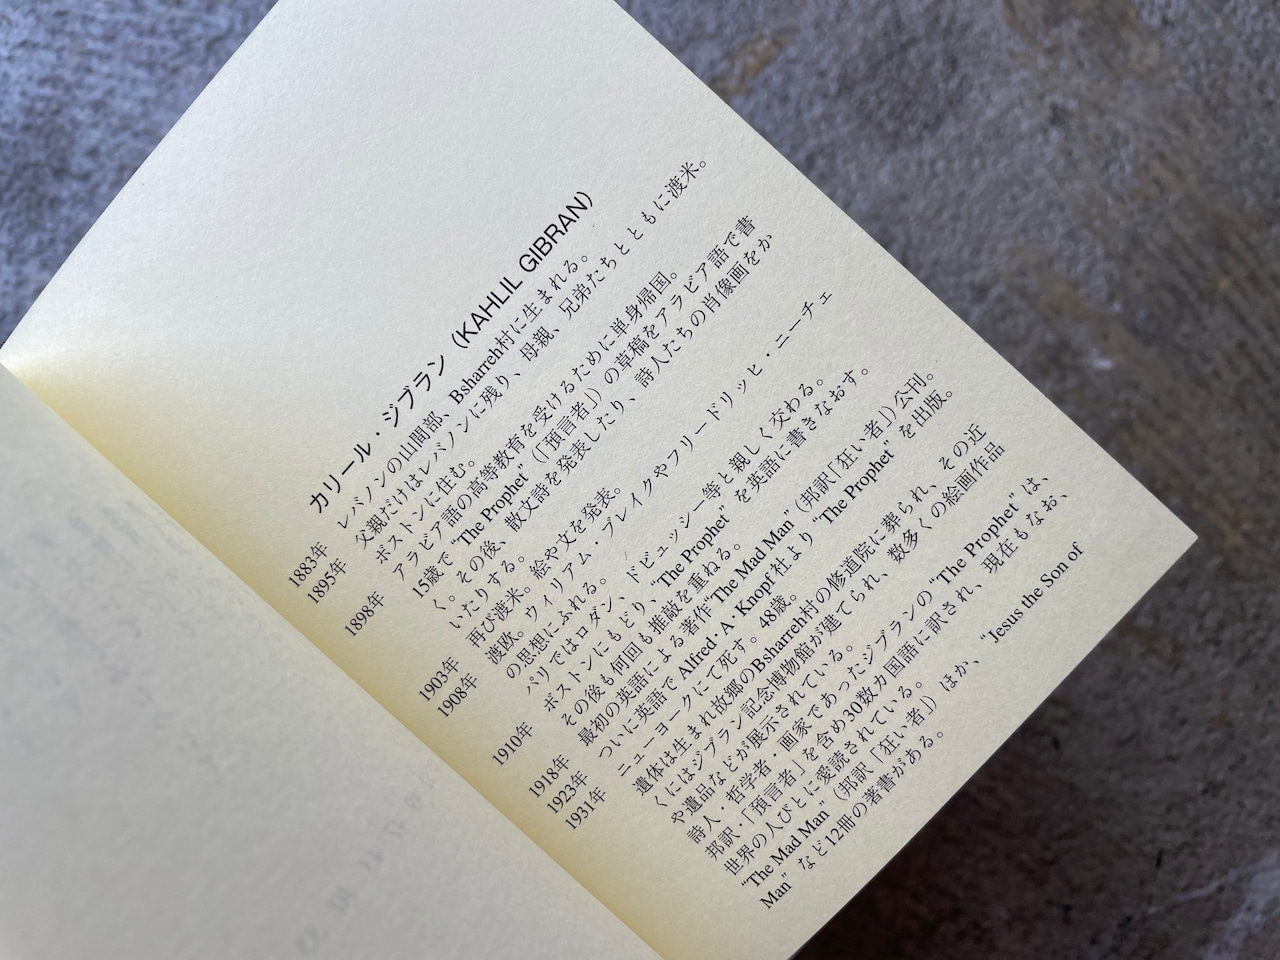 カリール・ジブラン（KAHLIL GIBRAN）
1883年 レバノンの山間部、Bsharreh村に生まれる。
1895年 父親だけはレバノンに残り、母親、兄弟たちとともに渡米。
ボストンに住む。
1898年 アラビア語の高等教育を受けるために単身帰国。
15歳で“The Prophet”（「預言者」）の草稿をアラビア語で書
く。その後、散文詩を発表したり、詩人たちの肖像画をか
いたりする。
1903年 再び渡米。絵や文を発表。
1908年 渡欧。ウィリアム・ブレイクやフリードリッヒ・ニーチェ
の思想にふれる。
パリではロダン、ドビュッシー等と親しく交わる。
1910年 ボストンにもどり、“The Prophet”を英語に書きなおす。
その後も何回も推敲を重ねる。
1918年 最初の英語による著作“The Mad Man”（邦訳「狂い者」）公刊。
1923年 ついに英語で Alfred・A・Knopf 社より“The Prophet”を出版。
1931年 ニューヨークにて死す。48歳。
遺体は生まれ故郷のBsharreh村の修道院に葬られ、その近
くにはジブラン記念博物館が建てられ、数多くの絵画作品
や遺品などが展示されている。
詩人・哲学者・画家であったジブランの“The Prophet”は、
邦訳・「預言者」を含め30数カ国語に訳され、現在もなお、
世界の人びとに愛読されている。
“The Mad Man”（邦訳「狂い者」）ほか、“Jesus the Son of
Man”など12冊の著書がある。